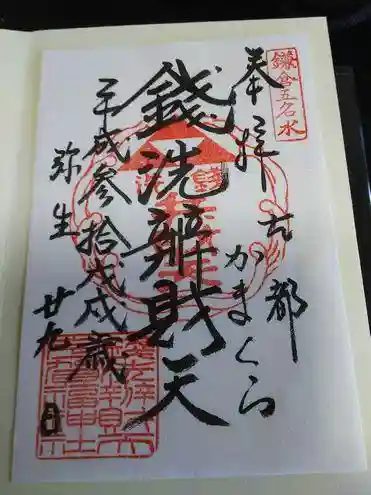 鎌倉五名水
奉拝
古都
かまくら
銭洗辨財天
平成参拾戊戌歳
弥生
廿九日